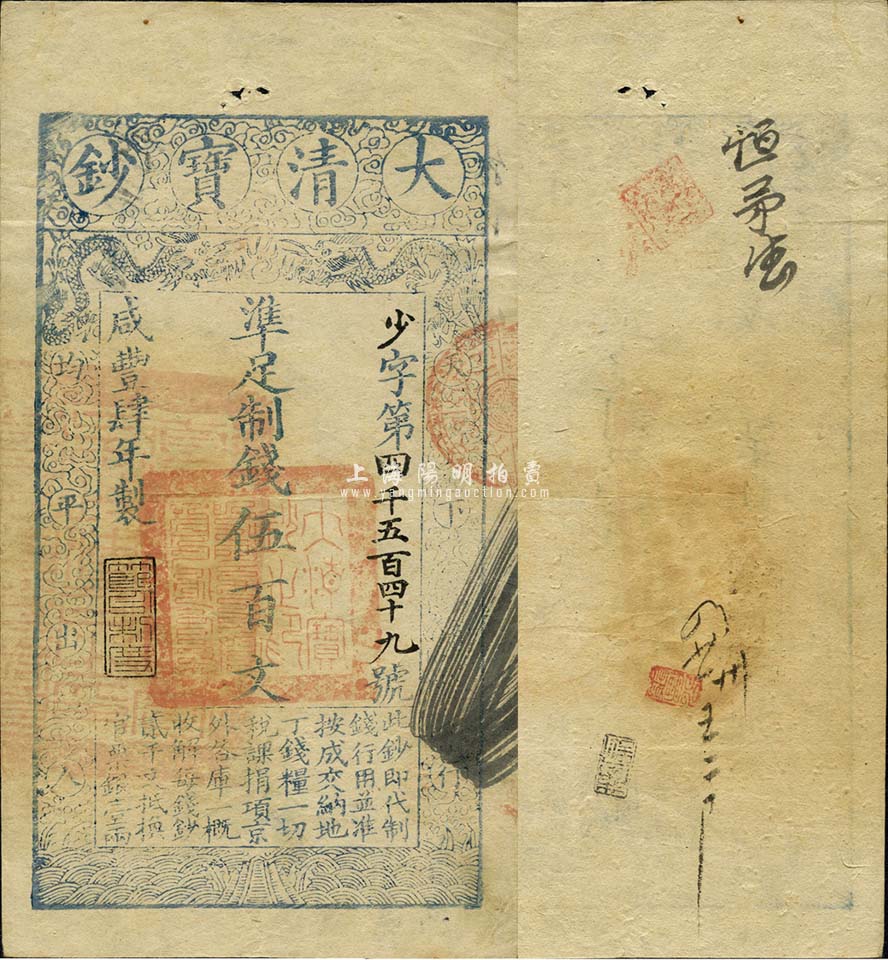 大清寶鈔
天下
平出
少字第四千五百四十九號
準足制錢伍百文
咸豐肆年製
此鈔即代制
錢行用並准
按成交納地
丁錢糧一切
稅課捐項京
外各庫一概
收解每錢鈔
貳千文抵換
官票銀壹兩
大清寶鈔之印
上海陽明拍賣
www.yangmingauction.com